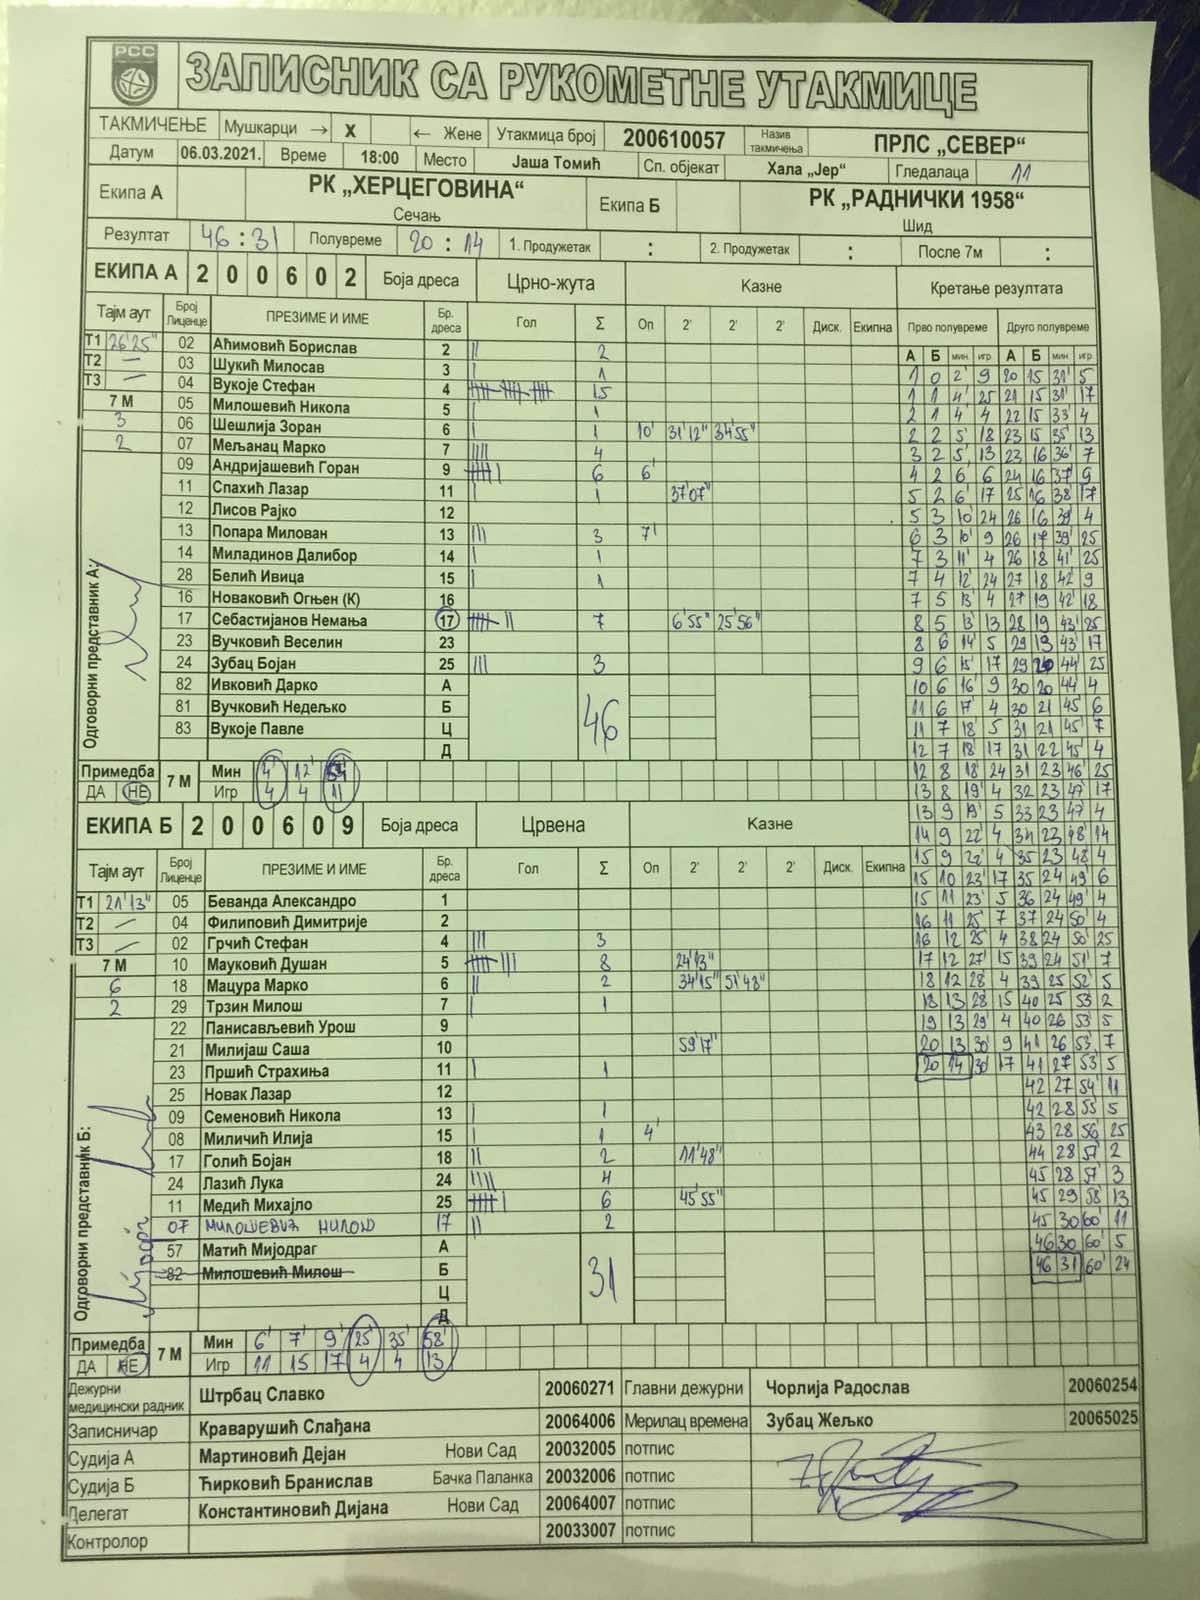 РСС
ЗАПИСНИК СА РУКОМЕТНЕ УТАКМИЦЕ
ТАКМИЧЕЊЕ Мушкарци → X ← Жене Утакмица број 200610057 Назив такмичења ПРЛС „СЕВЕР“
Датум 06.03.2021. Време 18:00 Место Јаша Томић Сп. објекат Хала „Јер“ Гледалаца 11
Екипа А РК „ХЕРЦЕГОВИНА“ Сечањ Екипа Б РК „РАДНИЧКИ 1958“ Шид
Резултат 46 : 31 Полувреме 20 : 14 1. Продужетак : 2. Продужетак : После 7м :
ЕКИПА А 2 0 0 6 0 2 Боја дреса Црно-жута Казне Кретање резултата
Тајм аут Број Лиценце ПРЕЗИМЕ И ИМЕ Бр. дреса Гол Σ Оп 2' 2' 2' Диск. Екипна Прво полувреме Друго полувреме
А Б мин. игр. А Б мин игр
T1 26'25" 02 Аћимовић Борислав 2 || 2
T2 — 03 Шукић Милосав 3 | 1
T3 — 04 Вукоје Стефан 4 15
7 М 05 Милошевић Никола 5 | 1
3 06 Шешлија Зоран 6 | 1 10' 31'12" 34'55"
2 07 Мељанац Марко 7 |||| 4
09 Андријашевић Горан 9 6 6'
11 Спахић Лазар 11 | 1 37'07"
12 Лисов Рајко 12
13 Попара Милован 13 ||| 3 7'
14 Миладинов Далибор 14 | 1
28 Белић Ивица 15 | 1
16 Новаковић Огњен (К) 16
17 Себастијанов Немања 17 7 6'55" 25'56"
23 Вучковић Веселин 23
24 Зубац Бојан 25 ||| 3
82 Ивковић Дарко А
81 Вучковић Недељко Б 46
83 Вукоје Павле Ц
Д
Одговорни представник А:
Примедба ДА НЕ 7 М Мин 4' 12' 54'
Игр 4 4 11
ЕКИПА Б 2 0 0 6 0 9 Боја дреса Црвена Казне
Тајм аут Број Лиценце ПРЕЗИМЕ И ИМЕ Бр. дреса Гол Σ Оп 2' 2' 2' Диск. Екипна
T1 21'13" 05 Беванда Александро 1
T2 — 04 Филиповић Димитрије 2
T3 — 02 Грчић Стефан 4 ||| 3
7 М 10 Мауковић Душан 5 8 24'13"
6 18 Мацура Марко 6 || 2 34'15" 51'48"
2 29 Трзин Милош 7 | 1
22 Панисављевић Урош 9
21 Милијаш Саша 10 59'17"
23 Пршић Страхиња 11 | 1
25 Новак Лазар 12
09 Семеновић Никола 13 | 1
08 Миличић Илија 15 | 1 4'
17 Голић Бојан 18 || 2 11'48"
24 Лазић Лука 24 |||| 4
11 Медић Михајло 25 6 45'55"
07 МИЛОШЕВИЋ МИЛОШ 17 || 2
57 Матић Мијодраг А
82 Милошевић Милош Б 31
Ц
Д
Одговорни представник Б:
Примедба ДА НЕ 7 М Мин 6' 7' 9' 25' 35' 58'
Игр 11 15 17 4 4 13
1 0 2' 9 20 15 31' 5
1 1 4' 25 21 15 31' 17
2 1 4 4 22 15 33' 4
2 2 5' 18 23 15 35' 13
3 2 5' 13 23 16 36' 7
4 2 6 6 24 16 37' 9
5 2 6' 17 25 16 38' 17
5 3 10' 24 26 16 39' 4
6 3 10' 9 26 17 39' 25
7 3 11' 4 26 18 41' 25
7 4 12' 24 27 18 42' 9
7 5 13' 4 27 19 42' 18
8 5 13' 13 28 19 43' 25
8 6 14' 5 29 19 43' 17
9 6 15' 17 29 20 44' 25
10 6 16' 9 30 20 44' 4
11 6 17' 4 30 21 45' 6
11 7 18' 5 31 21 45' 7
12 7 18' 17 31 22 45' 4
12 8 18' 24 31 23 46' 25
13 8 19' 4 32 23 47' 17
13 9 19' 5 33 23 47' 4
14 9 22' 4 34 23 48' 14
15 9 22' 4 35 23 48 4
15 10 23' 17 35 24 49' 6
15 11 23' 5 36 24 49' 4
16 11 25' 7 37 24 50' 4
16 12 25' 4 38 24 50' 25
17 12 27' 15 39 24 51' 7
18 12 28' 4 39 25 52' 5
18 13 28' 15 40 25 53 2
19 13 29' 4 40 26 53' 5
20 13 30' 9 41 26 53' 7
20 14 30' 17 41 27 53' 5
42 27 54' 11
42 28 55' 5
43 28 56' 25
44 28 57' 2
45 28 57' 3
45 29 58' 13
45 30 60' 11
46 30 60' 5
46 31 60' 24
Дежурни медицински радник Штрбац Славко 20060271 Главни дежурни Чорлија Радослав 20060254
Записничар Краварушић Слађана 20064006 Мерилац времена Зубац Жељко 20065025
Судија А Мартиновић Дејан Нови Сад 20032005 потпис
Судија Б Ћирковић Бранислав Бачка Паланка 20032006 потпис
Делегат Константиновић Дијана Нови Сад 20064007 потпис
Контролор 20033007 потпис